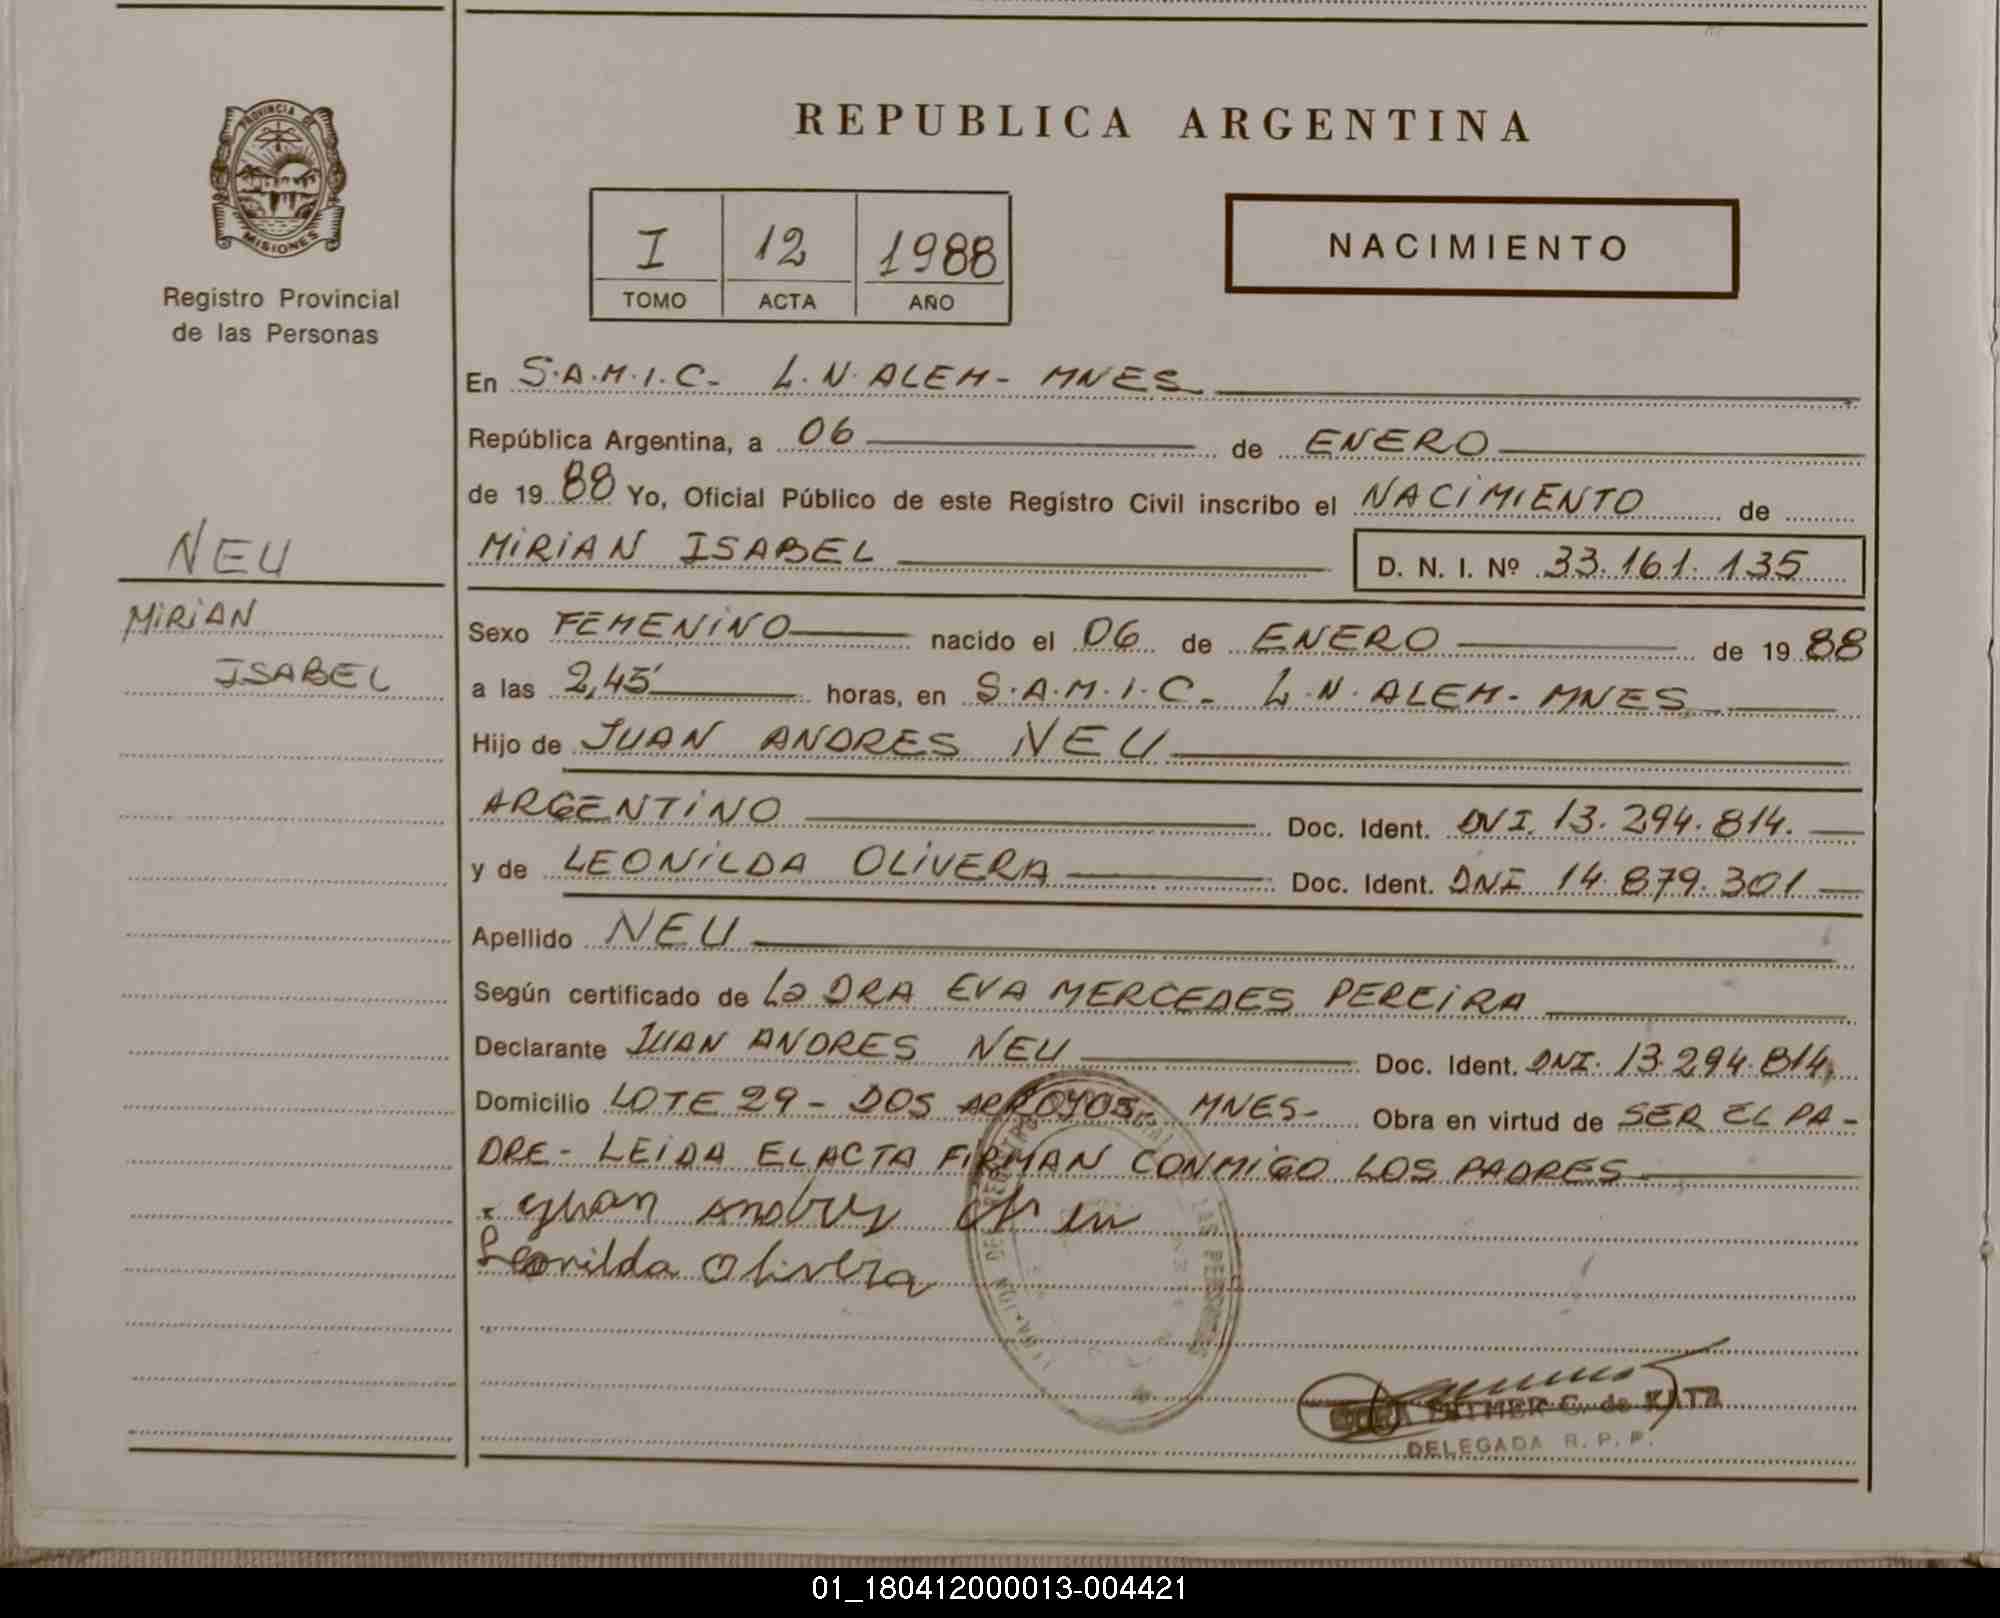 REPUBLICA ARGENTINA
PROVINCIA DE
MISIONES
Registro Provincial
de las Personas
I 12 1988
TOMO ACTA AÑO
NACIMIENTO
NEU
MIRIAN
ISABEL
En S.A.M.I.C. - L.N. ALEM - MNES
República Argentina, a 06 de ENERO
de 19 88 Yo, Oficial Público de este Registro Civil inscribo el NACIMIENTO de
MIRIAN ISABEL D. N. I. Nº 33.161.135
Sexo FEMENINO nacido el 06 de ENERO de 19 88
a las 2,45' horas, en S.A.M.I.C. - L.N. ALEM - MNES
Hijo de JUAN ANDRES NEU
ARGENTINO Doc. Ident. DNI. 13.294.814.
y de LEONILDA OLIVERA Doc. Ident. DNI 14.879.301
Apellido NEU
Según certificado de La DRA EVA MERCEDES PEREIRA
Declarante JUAN ANDRES NEU Doc. Ident. DNI. 13.294.814,
Domicilio LOTE 29 - DOS ARROYOS - MNES - Obra en virtud de SER EL PA-
DRE - LEIDA EL ACTA FIRMAN CONMIGO LOS PADRES
Leonilda Olivera
C. de KATZ
DELEGADA R. P. P.
01_180412000013-004421